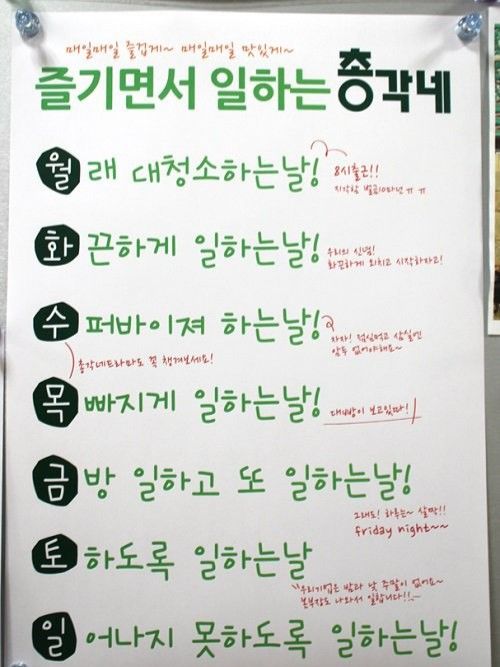 매일매일 즐겁게~ 매일매일 맛있게~
즐기면서 일하는 총각네
월래 대청소하는날!
8시출근!!
지각함 벌금10만원 ㅠㅠ
화끈하게 일하는날!
우리의 신념!
화끈하게 외치고 시작하자고!
수퍼바이져 하는날!
자자! 점심먹고 삼실엔
암두 없어야해요~
총각네드라마도 꼭 챙겨보세요!
목빠지게 일하는날!
대빵이 보고있따!
금방 일하고 또 일하는날!
그래도! 하루는~ 살짝!!
friday night~~
토하도록 일하는날
"우리기업은 밤과 낮 주말이 없어요~
본부장도 나와서 일합니다!!~
일어나지 못하도록 일하는날!